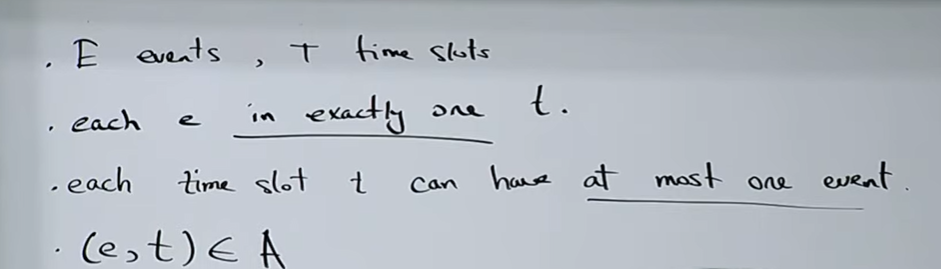 . E events , T time slots
. each e in exactly one t.
. each time slot t can have at most one event.
. (e,t) ∈ A